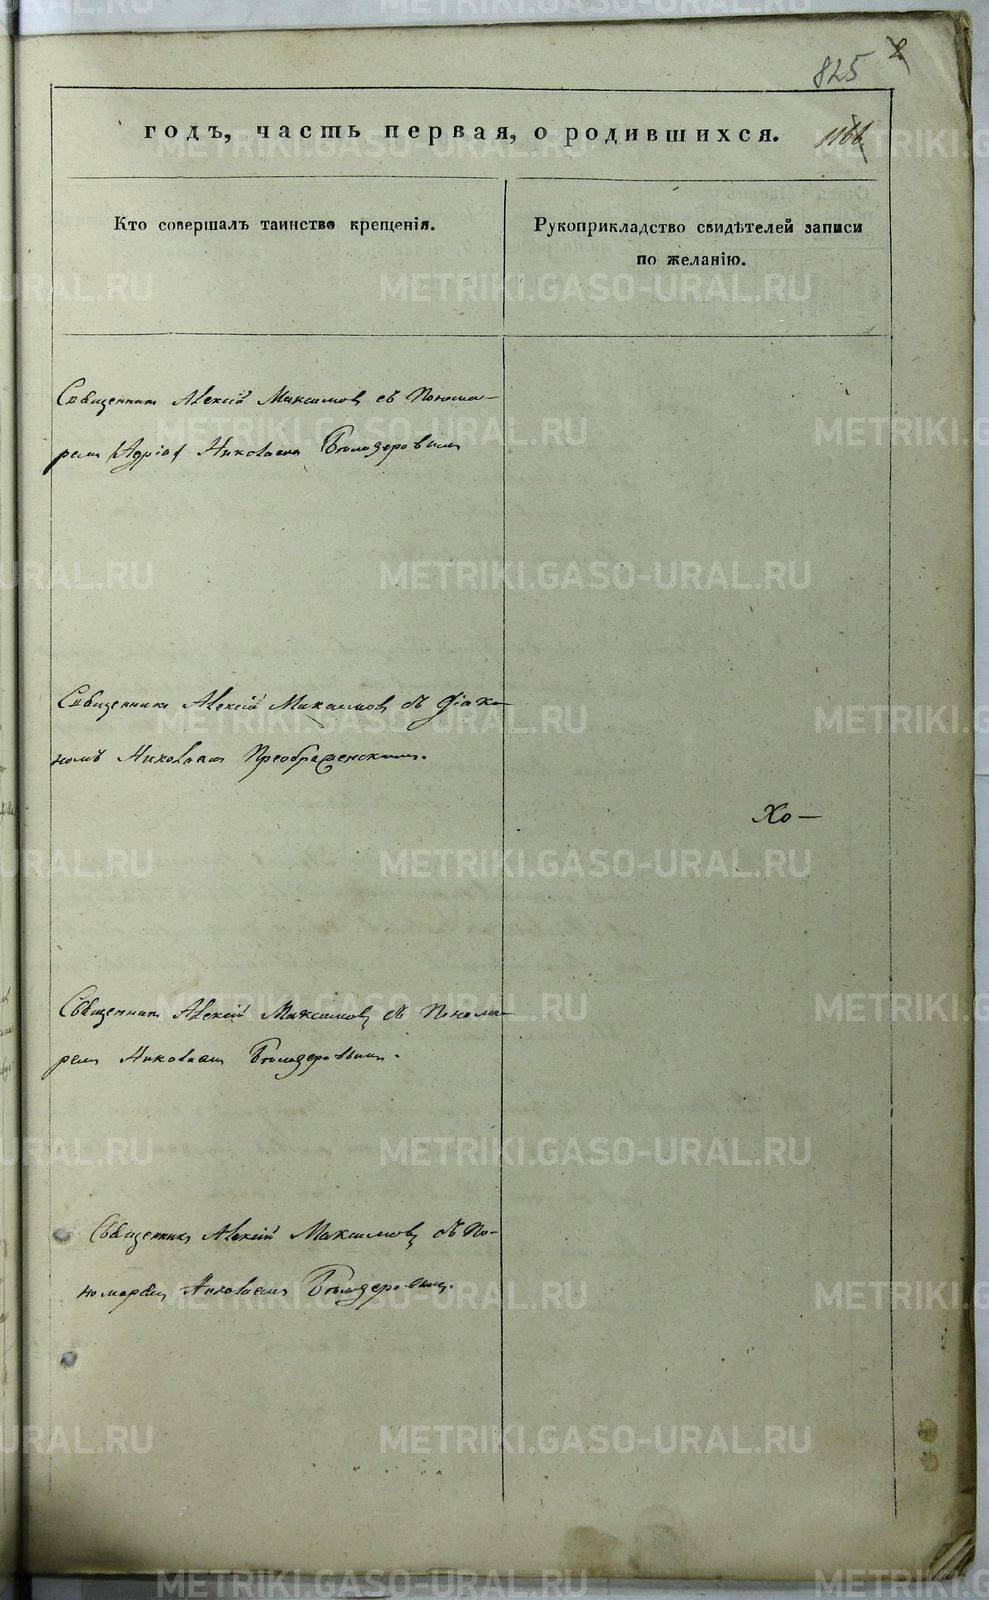 825
годъ, часть первая, о родившихся. 1166
Кто совершалъ таинство крещенія.
Рукоприкладство свидѣтелей записи
по желанію.
Священникъ Алексій Максимовъ съ Понома-
ремъ Николаемъ
Священникъ Алексій Максимовъ съ Діако-
номъ Николаемъ Преображенскимъ.
Хо-
Священникъ Алексій Максимовъ съ Понома-
ремъ Николаемъ
Священникъ Алексій Максимовъ съ По-
номаремъ Николаемъ
METRIKI.GASO-URAL.RU